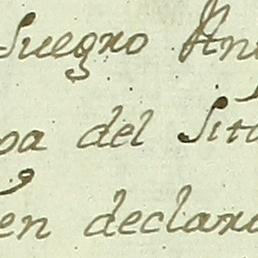 Suegro An
pa del Sito
en declara